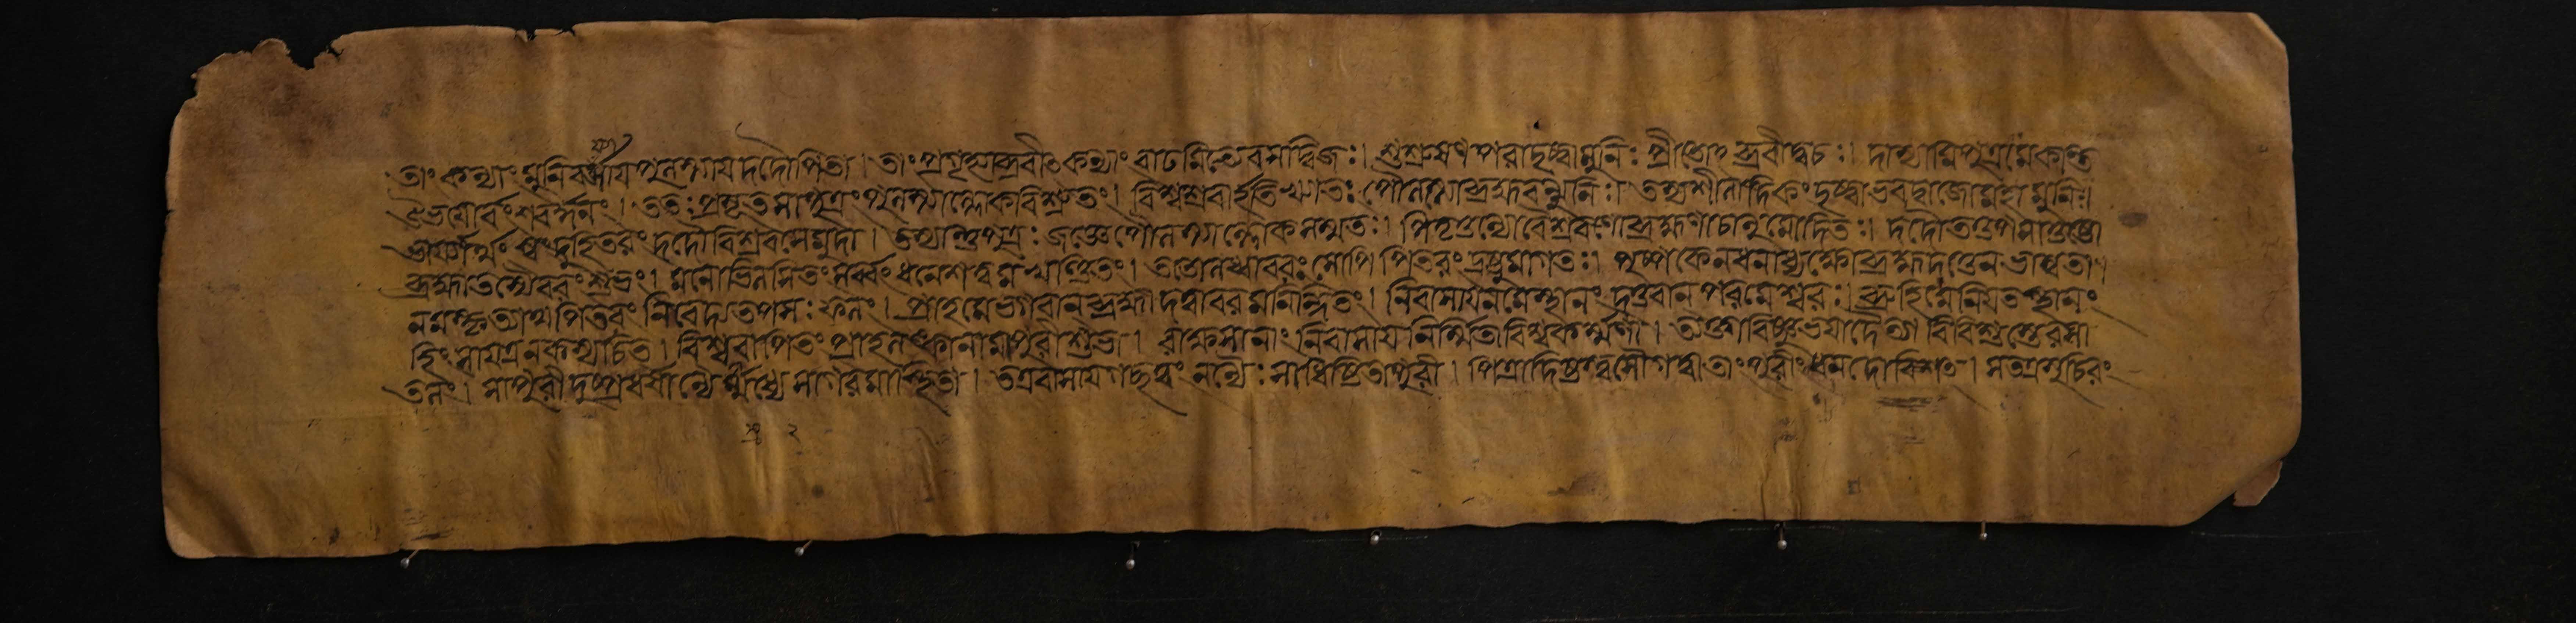 তাং কন্যাং মুনিবর্য্যায পুলস্ত্যায দদৌ পিতা । তাং প্রগৃহ্যাব্রবীৎ কন্যাং বাঢমিত্যেব স দ্বিজঃ । শুশ্রূষণপরাং দৃষ্ট্বা মুনিঃ প্রীতোঽব্রবীদ্বচঃ । দাস্যামি পুত্রমেকন্তে
উভযোর্বংশবর্দ্ধনং । ততঃ প্রসূত সা পুত্রং পুলস্ত্যাল্লোকবিশ্রুতং । বিশ্বশ্রবা ইতি খ্যাতঃ পৌলস্ত্যো ব্রহ্মবন্মুনিঃ । তস্য শীলাদিকং দৃষ্ট্বা ভরদ্বাজো মহামুনিঃ ।
ভার্যার্থং স্বং দুহিতরং দদৌ বিশ্রবসে মুদা । তস্যান্তু পুত্রঃ জজ্ঞে পৌলস্ত্যাল্লোকসম্মতঃ । পিতৃতুল্যো বৈশ্রবণো ব্রহ্মণা চানুমোদিতঃ । দদৌ তত্তপসা তুষ্টো
ব্রহ্মা তস্মৈ বরং শুভং । মনোভিলষিতং সর্ব্বং ধনেশত্বমখণ্ডিতং । ততো লব্ধাবরঃ সোপি পিতরং দ্রষ্টুমাগতঃ । পুষ্পকেন ধনাধ্যক্ষো ব্রহ্মদত্তেন ভাস্বতা ।
নমস্কৃত্যাথ পিতরং নিবেদ্য তপসঃ ফলং । প্রাহ মে ভগবান ব্রহ্মা দত্ত্বা বরমনিন্দিতং । নিবাসায ন মে স্থানং দত্তবান পরমেশ্বরঃ । ব্রূহি মে নিযত স্থানং
হিংসা যত্র ন কস্যচিত । বিশ্রবাপি তং প্রাহ লঙ্কা নাম পুরী শুভা । রাক্ষসানাং নিবাসায নির্ম্মিতা বিশ্বকর্ম্মণা । ত্যক্ত্বা বিষ্ণুভযাদ্দৈত্যা বিবিশুস্তে রসা
তলং । সা পুরী দুষ্প্রধর্ষান্যৈর্ম্মধ্যে সাগরমাস্থিতা । তত্র বাসায গচ্ছ ত্বং নান্যৈঃ সাধিষ্ঠিতা পুরী । পিত্রাদিষ্টস্ত্বসৌ গত্বা তাং পুরীং ধনদোবিশত । স তত্র সুচিরং